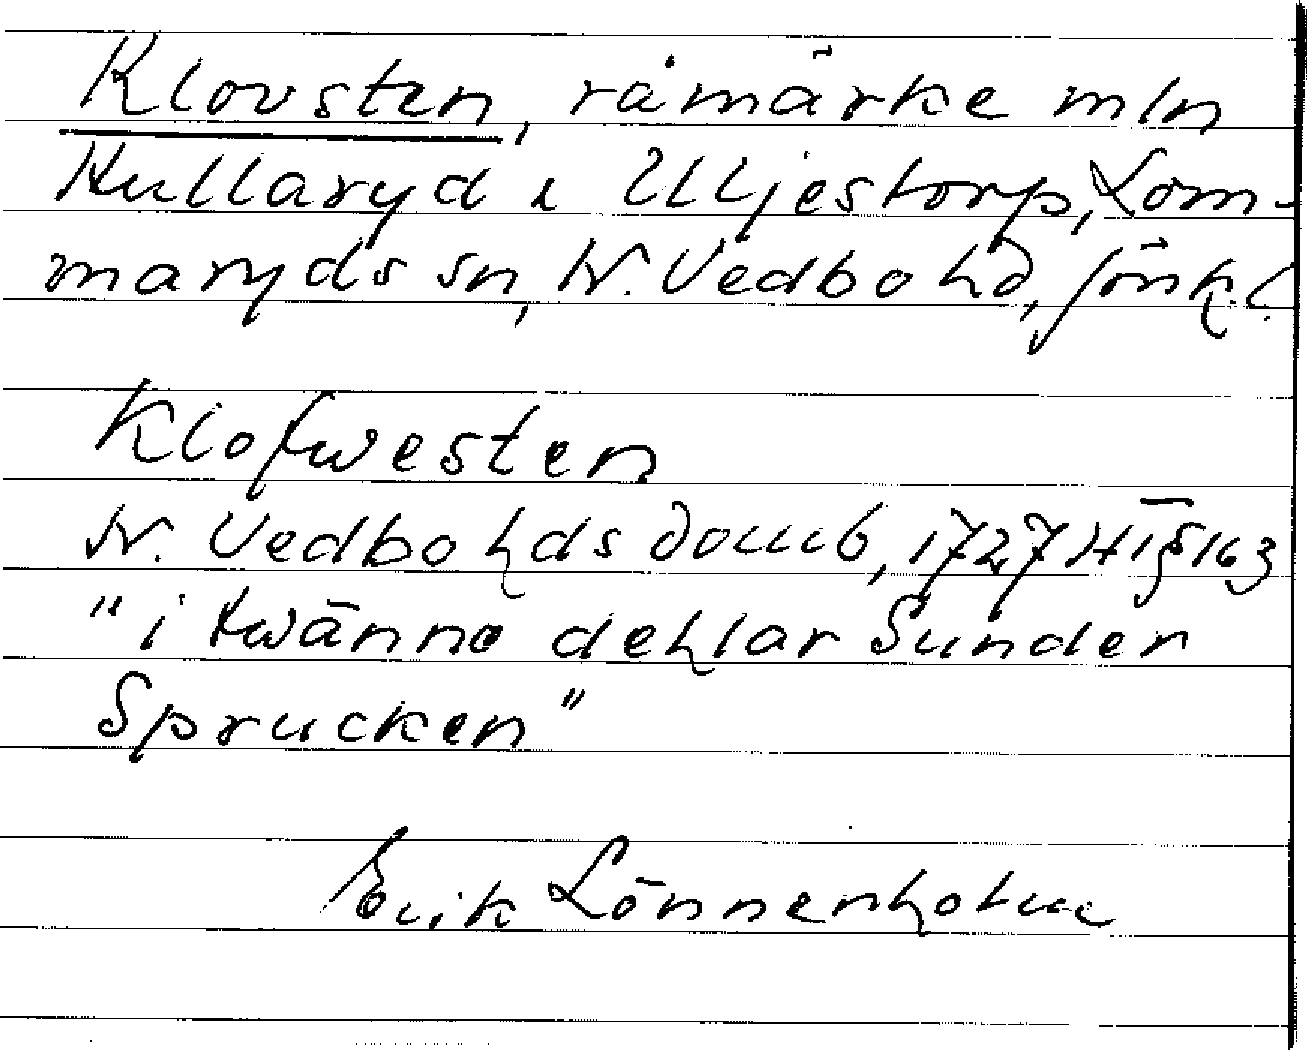 Klovsten, råmärke mln
Hullaryd i Ulljestorp, Lom-
maryds sn, N. Vedbo hd, Jönk. l.
Klofwesten
N. Vedbo hds domb, 1727 HT § 163
"i twänne dehlar Sunder
Sprucken"
Erik Lönnerholm